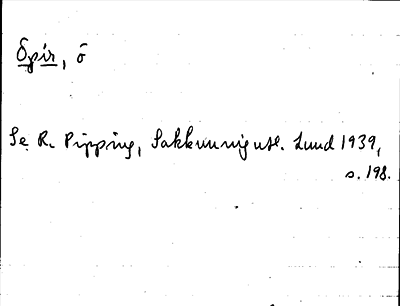 Öpir, ō
Se R. Pipping, Sakkunnigutl. Lund 1939,
s. 198.